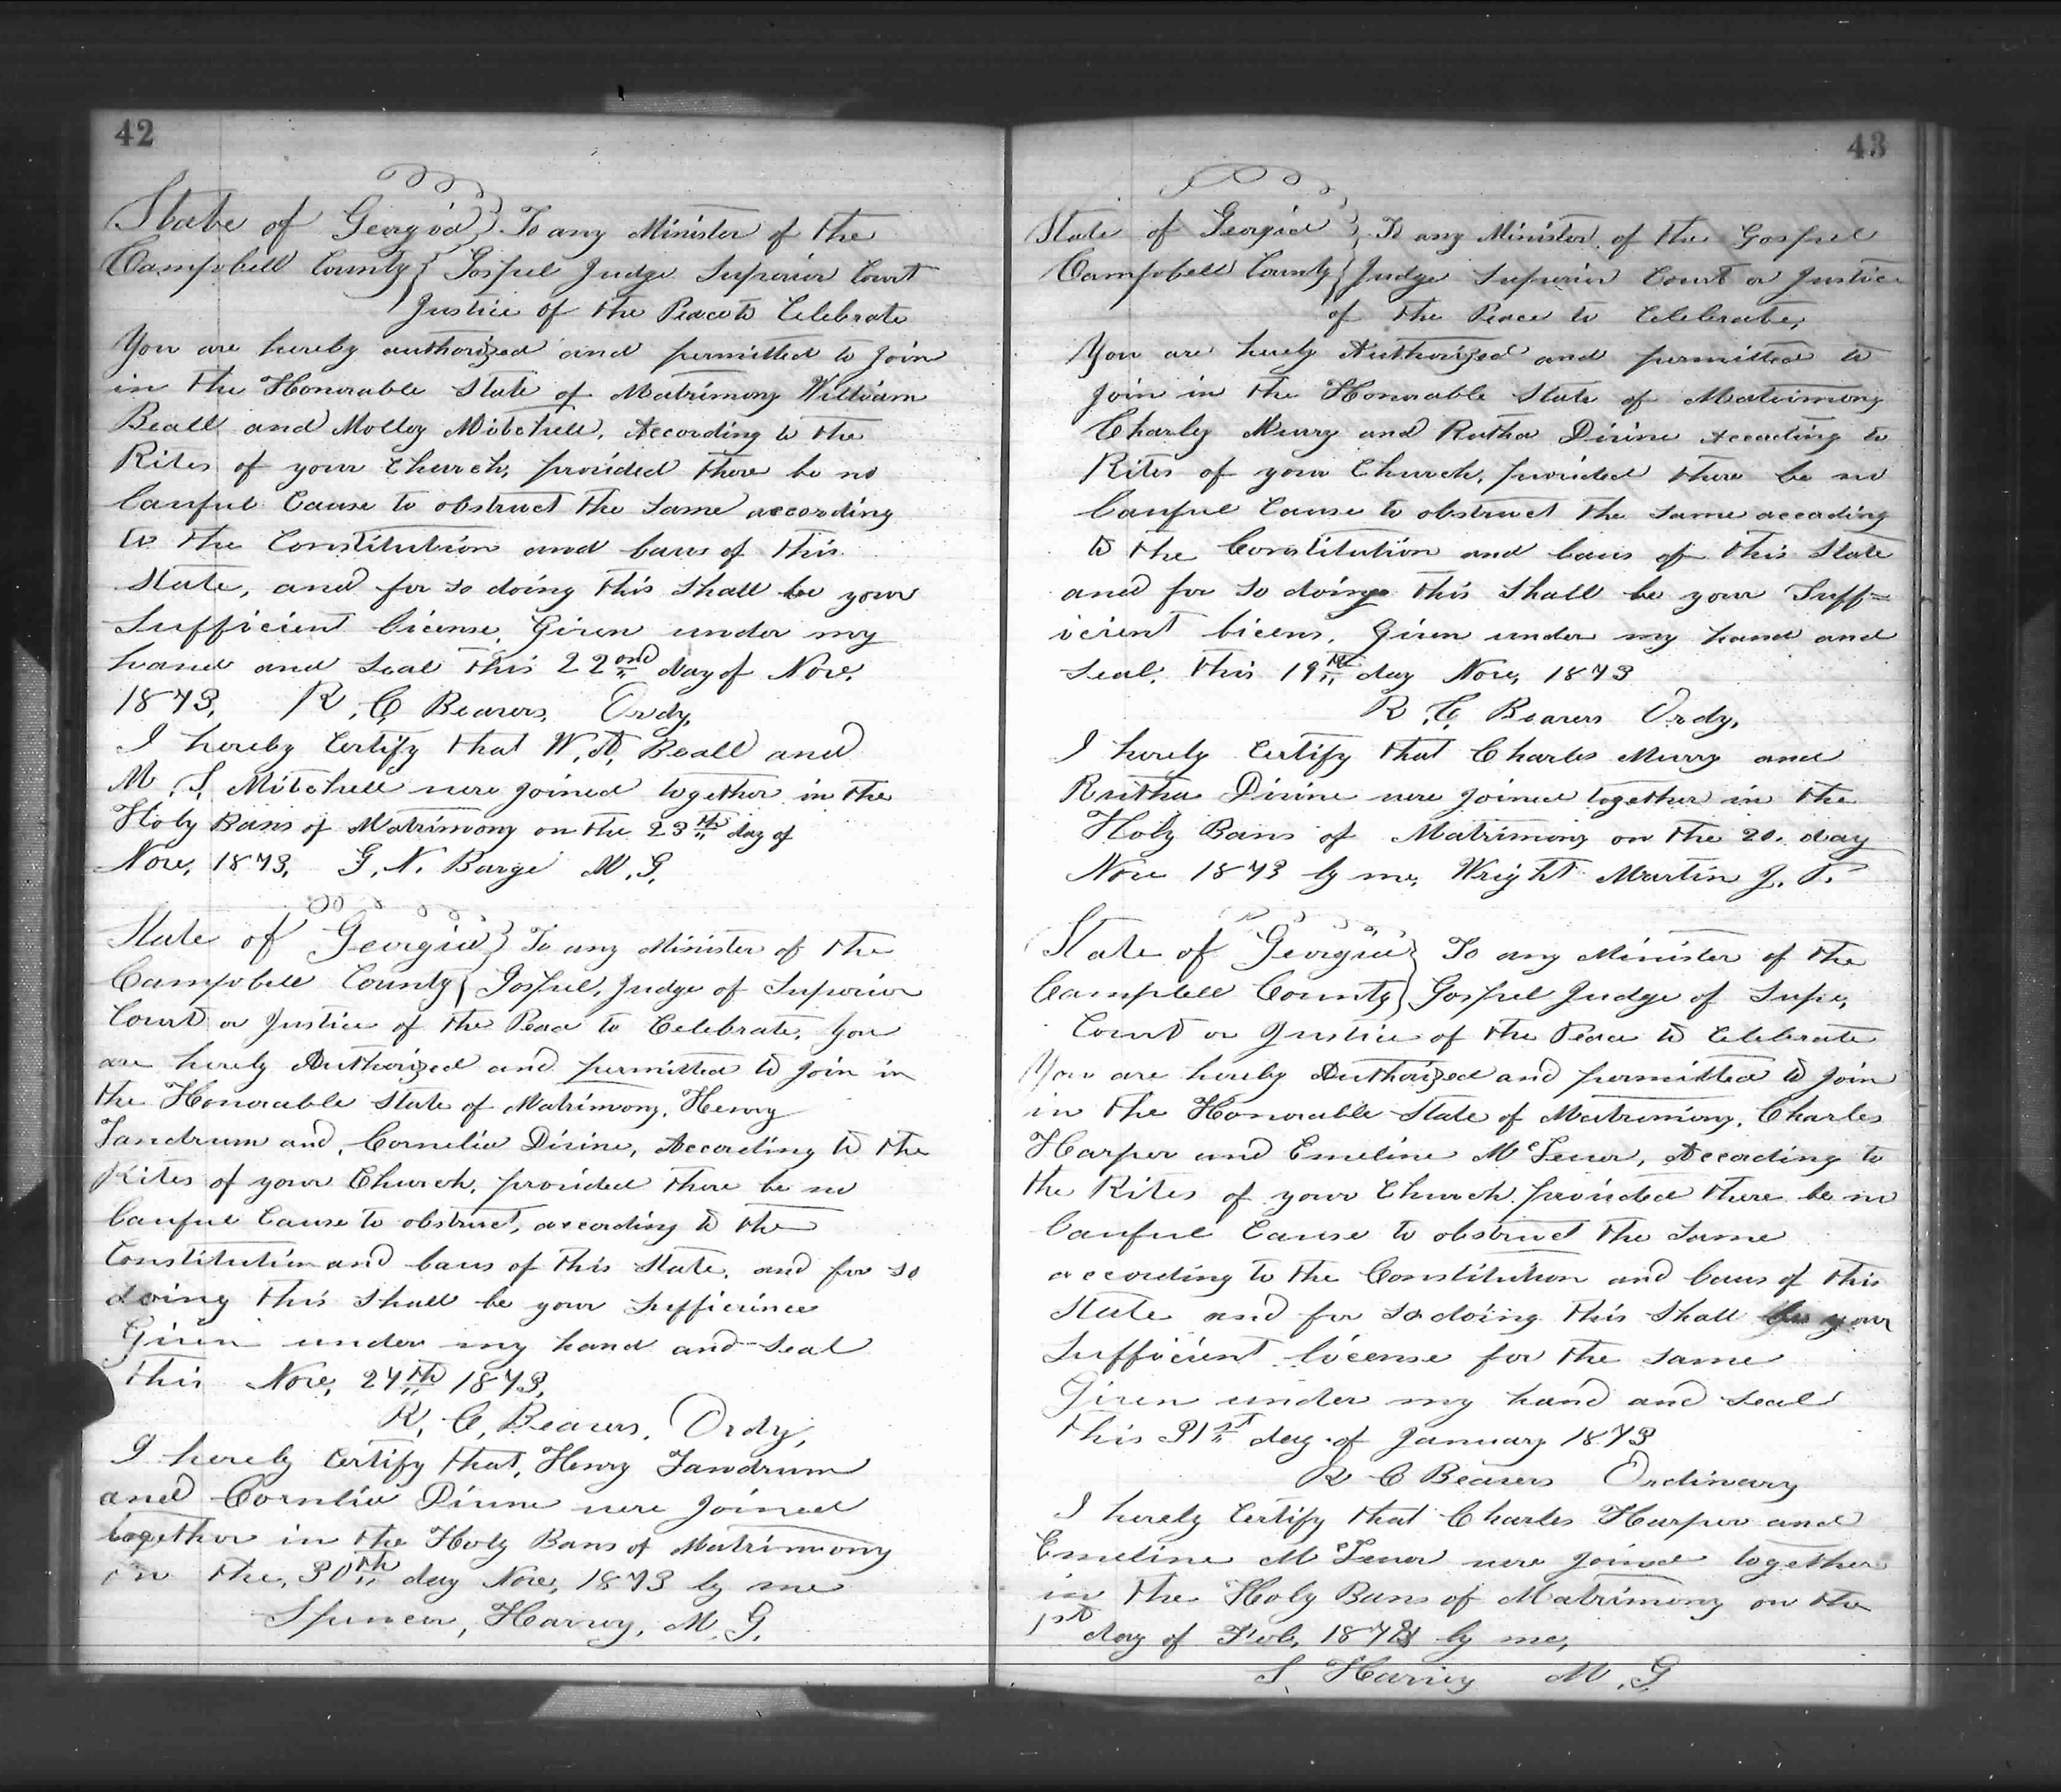 42
State of Georgia } To any Minister of the
Campbell County } Gospel Judge Superior Court
Justice of the Peace to Celebrate
You are hereby authorized and permitted to Join
in the Honorable State of Matrimony William
Beall and Molley Mitchell, According to the
Rites of your Church, provided there be no
Lawful Cause to obstruct the Same according
to the Constitution and Laws of this
State, and for so doing this Shall be your
Sufficient License, Given under my
hand and Seal this 22ond day of Nov.
1873, R. C. Beavers, Ordy,
I hereby Certify that W. A. Beall and
M. S. Mitchell were Joined together in the
Holy Bans of Matrimony on the 23th day of
Nov, 1873, G. N. Barge M. G.
State of Georgia } To any Minister of the
Campbell County } Gospel, Judge of Superior
Court or Justice of the Peace to Celebrate, You
are hereby Authorized and permitted to Join in
the Honorable State of Matrimony, Henry
Landrum and, Cornelia Divine, According to the
Rites of your Church, provided there be no
Lawful Cause to obstruct, according to the
Constitution and Laws of this State, and for so
doing this Shall be your Sufficience
Given under my hand and Seal
this Nov, 24th 1873,
R, C, Beavers, Ordy,
I hereby Certify that, Henry Landrum
and Cornlia Divine were Joined
together in the Holy Bans of Matrimony
on the, 30th day Nov, 1873 by me
Spencer, Harvey, M. G.
43
State of Georgia } To any Minister of the Gospel
Campbell County } Judge Superior Court or Justice
of the Peace to Celebrate,
You are hereby Authorized and permitted to
Join in the Honorable State of Matrimony
Charly Murry and Rutha Divine According to
Rites of your Church, provided there be no
Lawful Cause to obstruct the Same according
to the Constitution and Laws of this State
and for So doing this Shall be your Suff=
icient Licens, Given under my hand and
Seal, this 19th day Nov, 1873
R. C. Beavers Ordy,
I hereby Certify that Charles Murry and
Rutha Divine were Joined together in the
Holy Bans of Matrimony on the 20. day
Nov 1873 by me, Wright Martin J. P.
State of Georgia } To any Minister of the
Campbell County } Gospel Judge of Supe,
Court or Justice of the Peace to Celebrate
You are hereby Authorized and permitted to Join
in the Honorable State of Matrimony, Charles
Harper and Emeline McLeuor, According to
the Rites of your Church provided there be no
Lawful Cause to obstruct the Same
according to the Constitution and Laws of this
State and for So doing this Shall be your
Sufficient License for the same
Given under my hand and Seal
this 31st day of January 1873
R C Beavers Ordinary
I hereby Certify that Charles Harper and
Emeline McLeuor were Joined together
in the Holy Bans of Matrimony on the
1st day of Feb, 1873 by me,
S. Harvey M. G.